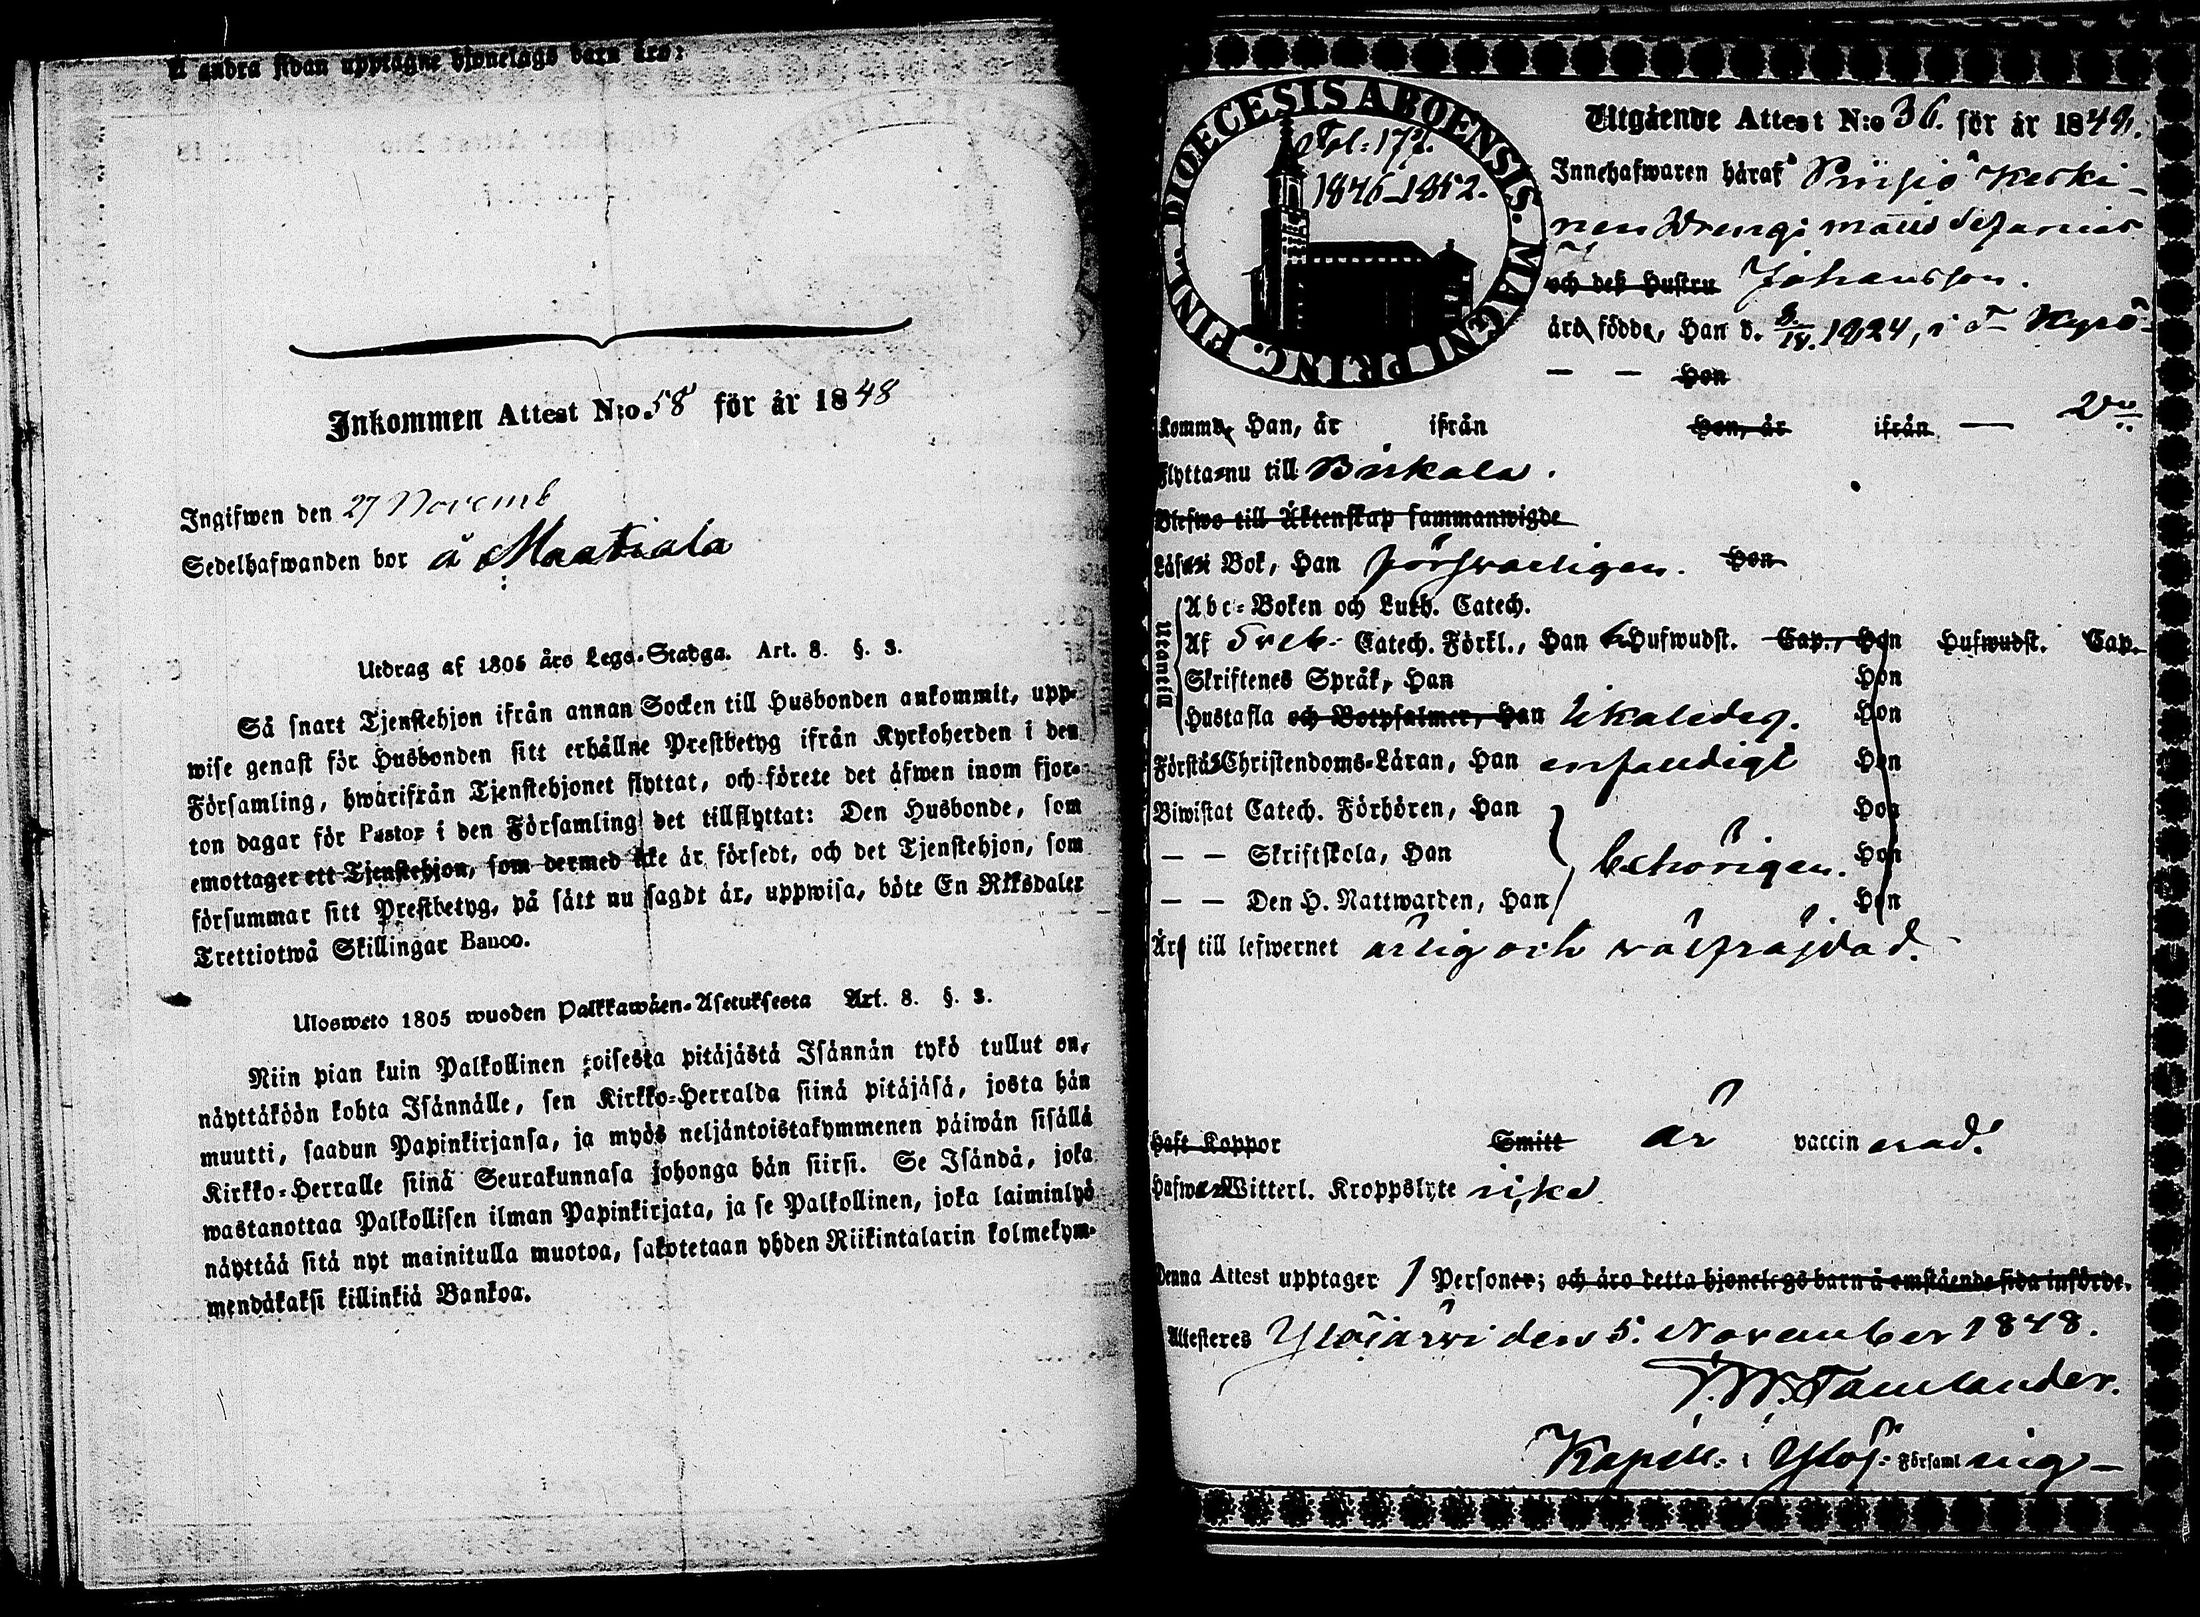 å andra sidan upptagne hjonelags barn äro:
Inkommen Attest N:o. 58 för år 1848
Ingifwen den 27 Novemb
Sedelhafwanden bor å Maatiala
Utdrag af 1805 års Lego-Stadga. Art. 8. §. 3.
Så snart Tjenstehjon ifrån annan Socken till Husbonden ankommit, upp-
wise genast för Husbonden sitt erhållne Prestbetyg ifrån Kyrkoherden i den
Församling, hwarifrån Tjenstehjonet flyttat, och förete det äfwen inom fjor-
ton dagar för Pastor i den Församling det tillflyttat: Den Husbonde, som
emottager ett Tjenstehjon, som dermed icke är försedt, och det Tjenstehjon, som
försummar sitt Prestbetyg, på sätt nu sagdt är, uppwisa, böte En Riksdaler
Trettiotwå Skillingar Banco.
Ulosweto 1805 wuoden Palkkawäen-Asetuksesta Art. 8. §. 3.
Niin pian kuin Palkollinen toisesta pitäjästä Isännän tykö tullut on,
näyttäköön kohta Isännälle, sen Kirkko-Herralda siinä pitäjäsä, josta hän
muutti, saadun Papinkirjansa, ja myös neljäntoistakymmenen päiwän sisällä
Kirkko-Herralle siinä Seurakunnasa johonga hän siirsi. Se Isändä, joka
wastanottaa Palkollisen ilman Papinkirjata, ja se Palkollinen, joka laiminlyö
näyttää sitä nyt mainitulla muotoa, sakotetaan yhden Riikintalarin kolmekym-
mendäkaksi killinkiä Bankoa.
DIOECESIS ABOENSIS. MAGNI PRINC. FINL.
Fol: 172.
1846-1852.
Utgående Attest N:o 36. för år 1848.
Innehafwaren häraf Keski-
nen Drengi
och deß Hustru Johansson.
äro födde, Han d. 1824, i Kyrö
— — Hon
Komme Han, år ifrån Hon, år ifrån —
Flytta nu till Birkala.
Blefwo till Äktenskap sammanwigde
Läser i Bok, Han försvarligen. Hon
Utantill
Abc-Boken och Luth. Catech.
Af Sveb. Catech. Förkl., Han 6 Hufwudst. Cap., Hon Hufwudst. Cap.
Skriftenes Språk, Han Hon
Hustafla och Botpsalmer, Han Hon
Förstår Christendoms-Läran, Han enfaldigt Hon
Biwistat Catech. Förhören, Han Hon
— — Skriftskola, Han behörigen. Hon
— — Den H. Nattwarden, Han Hon
Är till lefwernet ärlig och välfräjdad.
Haft Koppor Smitt är vaccinerad.
Hafwer Witterl. Kroppslyte icke
Denna Attest upptager 1 Personer; och äro detta hjonelags barn å omstående sida införde.
Attesteres Ylöjärvi den 5. November 1848.
Tamlander.
Kapell. i Ylöj. Församling